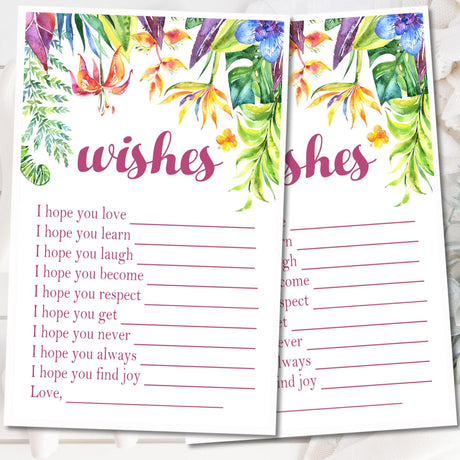 wishes
I hope you love
I hope you learn
I hope you laugh
I hope you become
I hope you respect
I hope you get
I hope you never
I hope you always
I hope you find joy
Love,
shes
learn
gh
ecome
espect
et
ever
always
find joy